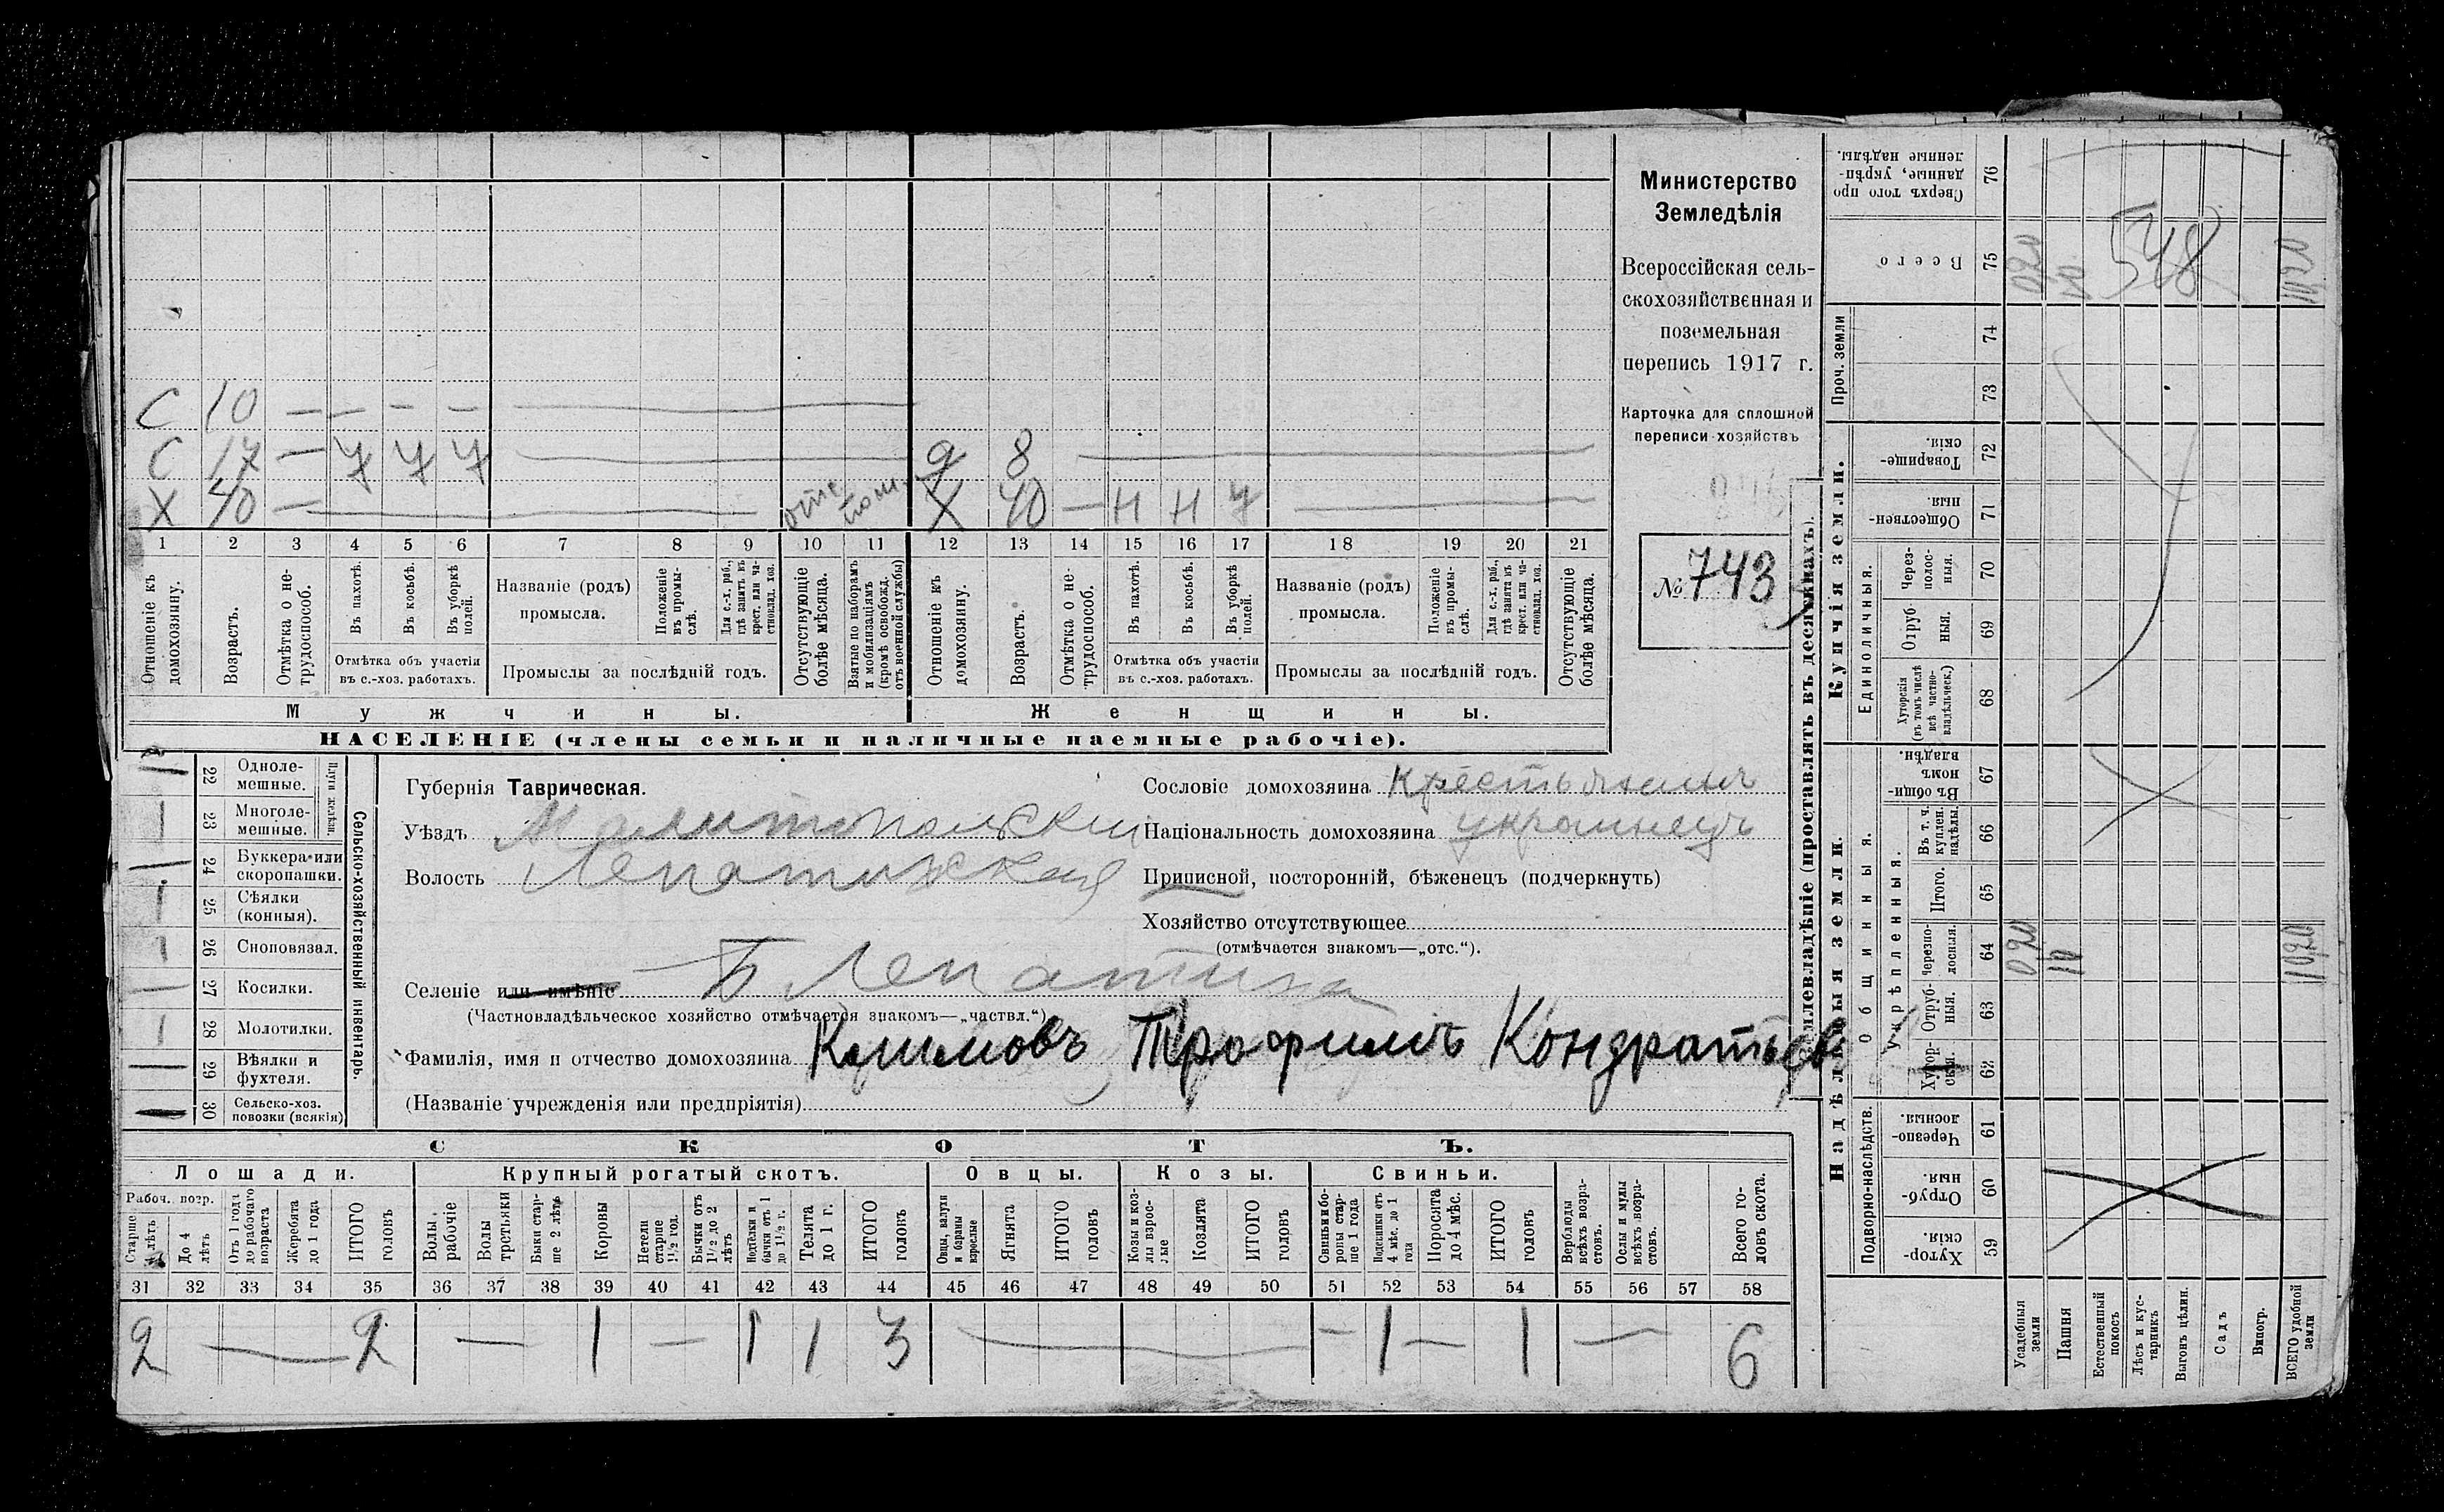 С 10 — — — —
С 17 — У У У
д 8
Х 40 —
Х 40 — Н Н У
1 2 3 4 5 6 7 8 9 10 11 12 13 14 15 16 17 18 19 20 21
Отношеніе къ домохозяину.
Возрастъ.
Отмѣтка о не-трудоспособ.
Въ пахотѣ.
Въ косьбѣ.
Въ уборкѣ полей.
Отмѣтка объ участіи въ с.-хоз. работахъ.
Названіе (родъ) промысла.
Положеніе въ промы-слѣ.
Для с.-х. раб., гдѣ занятъ въ крест. или ча-стновлад. хоз.
Промыслы за послѣдній годъ.
Отсутствующіе болѣе мѣсяца.
Взятые по наборамъ и мобилизаціямъ (кромѣ освобожд. отъ военной службы)
Отношеніе къ домохозяину.
Возрастъ.
Отмѣтка о не-трудоспособ.
Въ пахотѣ.
Въ косьбѣ.
Въ уборкѣ полей.
Отмѣтка объ участіи въ с.-хоз. работахъ.
Названіе (родъ) промысла.
Положеніе въ промы-слѣ.
Для с.-х. раб., гдѣ занятъ въ крест. или ча-стновлад. хоз.
Промыслы за послѣдній годъ.
Отсутствующіе болѣе мѣсяца.
Мужчины.
Женщины.
НАСЕЛЕНІЕ (члены семьи и наличные наемные рабочіе).
Министерство
Земледѣлія
Всероссійская сель-
скохозяйственная и
поземельная
перепись 1917 г.
Карточка для сплошной
переписи хозяйствъ
№ 743
22 Одноле-мешные.
23 Многоле-мешные.
24 Буккера или скоропашки.
25 Сѣялки (конныя).
26 Сноповязал.
27 Косилки.
28 Молотилки.
29 Вѣялки и фухтеля.
30 Сельско-хоз. повозки (всякія)
Сельско-хозяйственный инвентарь.
Губернія Таврическая.
Уѣздъ Мелитопольскій
Волость Лепатихская
Селеніе или имѣніе Б Лепатиха
(Частновладѣльческое хозяйство отмѣчается знакомъ—„частвл.“)
Фамилія, имя и отчество домохозяина Климовъ Трофимъ Кондратьев
(Названіе учрежденія или предпріятія)
Сословіе домохозяина Крестьянинъ
Національность домохозяина украинецъ
Приписной, посторонній, бѣженецъ (подчеркнуть)
Хозяйство отсутствующее
(отмѣчается знакомъ—„отс.“).
СКОТЪ.
Лошади. Крупный рогатый скотъ. Овцы. Козы. Свиньи.
Рабоч. возр.
Старше 4 лѣтъ
До 4 лѣтъ
Отъ 1 года до рабочаго возраста
Жеребята до 1 года
ИТОГО головъ
Волы рабочіе
Волы третьяки
Быки стар-ше 2 лѣтъ
Коровы
Нетели старше 1½ год.
Бычки отъ 1½ до 2 лѣтъ
Подтелки и бычки отъ 1 до 1½ г.
Телята до 1 г.
ИТОГО головъ
Овцы, валухи и бараны взрослые
Ягнята
ИТОГО головъ
Козы и коз-лы взрос-лые
Козлята
ИТОГО головъ
Свиньи и бо-ровы стар-ше 1 года
Подсвинки отъ 4 мѣс. до 1 года
Поросята до 4 мѣс.
ИТОГО головъ
Верблюды всѣхъ возра-стовъ.
Ослы и мулы всѣхъ возра-стовъ.
Всего го-ловъ скота.
31 32 33 34 35 36 37 38 39 40 41 42 43 44 45 46 47 48 49 50 51 52 53 54 55 56 57 58
2 — 2 — 1 — 1 1 3 — — 1 — 1 — 6
Землевладѣніе (проставлять въ десятинахъ).
Надѣльныя земли.
Купчія земли.
Проч. земли
Подворно-наслѣдств.
Общинныя.
Укрѣпленныя.
Единоличныя.
Сверхъ того про данные, укрѣп-ленные надѣлы. 76
Всего 75
74
73
Товарище-скія. 72
Обществен-ныя. 71
Через-полос-ныя. 70
Отруб ныя. 69
Хуторскія (въ томъ числѣ всѣ частно-владѣльческ.) 68
Въ общи-номъ владѣн. 67
Въ т. ч. куплен. надѣлы. 66
Итого. 65
Черезпо-лосныя. 64
Отруб-ныя. 63
Хутор-скія. 62
Черезпо-лосныя. 61
Отруб-ныя. 60
Хутор-скія. 59
548
Усадебныя земли
Пашня
Естественный покосъ
Лѣсъ и кус-тарникъ
Выгонъ цѣлин.
Садъ
Виногр.
ВСЕГО удобной земли